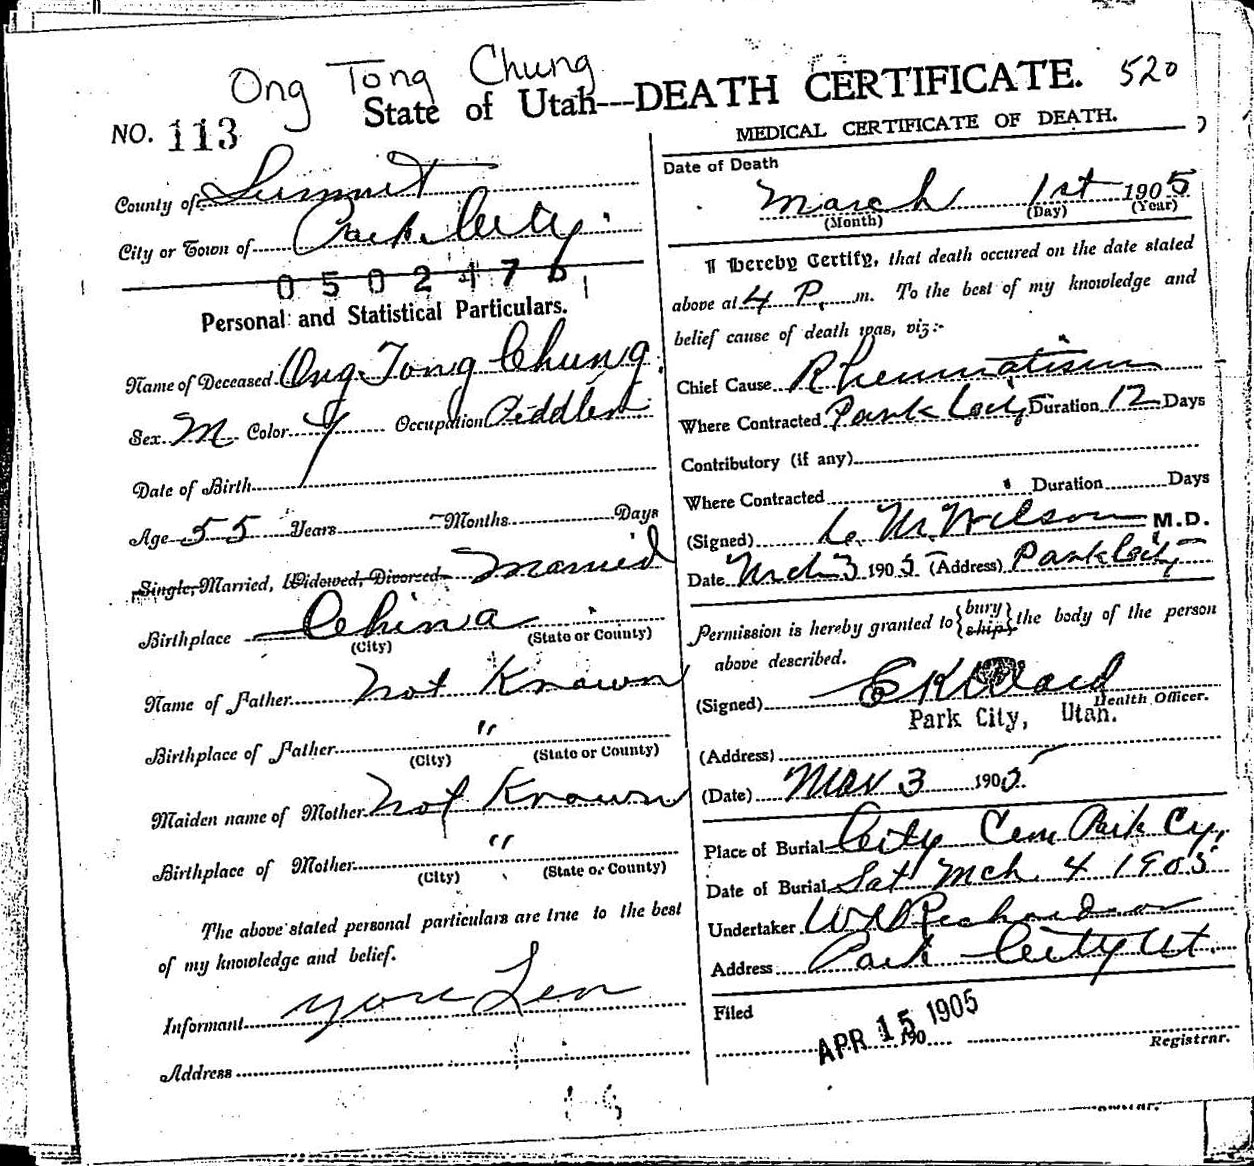 Ong Tong Chung
State of Utah---DEATH CERTIFICATE. 520
NO. 113
County of Summit
City or Town of Park City
0502476
Personal and Statistical Particulars.
Name of Deceased Ong Tong Chung
Sex M Color Y Occupation Peddler
Date of Birth
Age 55 Years Months Days
Single, Married, Widowed, Divorced Married
Birthplace China
(City) (State or County)
Name of Father Not Known
Birthplace of Father "
(City) (State or County)
Maiden name of Mother Not Known
Birthplace of Mother "
(City) (State or County)
The above stated personal particulars are true to the best
of my knowledge and belief.
Informant You Len
Address
MEDICAL CERTIFICATE OF DEATH.
Date of Death
March 1st 1905
(Month) (Day) (Year)
I Hereby Certify, that death occured on the date stated
above at 4 P. m. To the best of my knowledge and
belief cause of death was, viz:-
Chief Cause Rheumatism
Where Contracted Park City Duration 12 Days
Contributory (if any)
Where Contracted Duration Days
(Signed) M. Wilson M.D.
Date Mch 3 1905 (Address) Park City
Permission is hereby granted to {bury
ship} the body of the person
above described.
(Signed) Health Officer.
Park City, Utah.
(Address)
(Date) Mar 3 1905
Place of Burial City Cem Park Cy,
Date of Burial Sat Mch. 4 1905
Undertaker Richardson
Address Park City Ut.
Filed
APR 15 1905
190
Registrar.